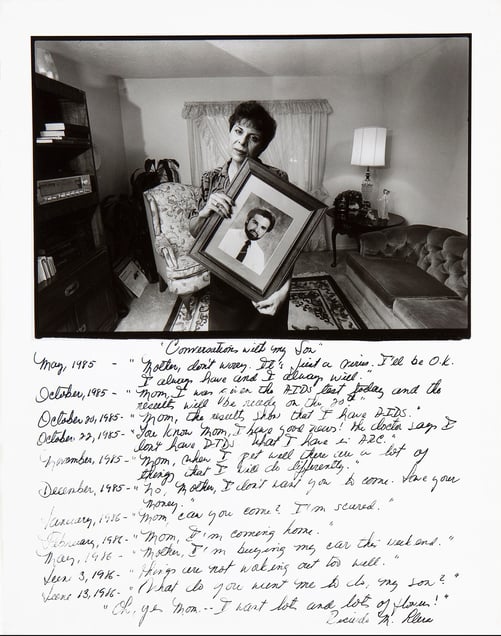 "Conversations with my Son"
May, 1985 - "Mother, don't worry. It's just a virus. I'll be O.K.
I always have and I always will."
October, 1985 - "Mom, I was given the AIDS test today and the
results will be ready on the 20th."
October 20, 1985 - "Mom, the results show that I have AIDS."
October 22, 1985 - "You know Mom, I have good news! The doctor says I
don't have AIDS what I have is ARC."
November, 1985 - "Mom, when I get well there are a lot of
things that I will do differently."
December, 1985 - "No, Mother, I don't want you to come. Save your
money."
January, 1986 - "Mom, can you come? I'm scared."
February, 1986 - "Mom, I'm coming home."
May, 1986 - "Mother, I'm buying my car this weekend."
June 3, 1986 - "Things are not working out too well."
June 13, 1986 - "What do you want me to do, my son?"
"Oh, yes Mom -- I want lots and lots of flowers!"
M.